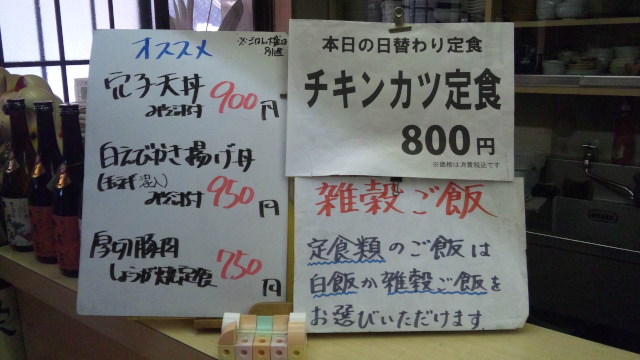 オススメ
穴子天丼
みそ汁付 900円
白えびかき揚げ丼
みそ汁付 950円
厚切豚肉
しょうが焼定食 750円
本日の日替わり定食
チキンカツ定食
800円
※価格は消費税込です
雑穀ご飯
定食類のご飯は
白飯か雑穀ご飯を
お選びいただけます